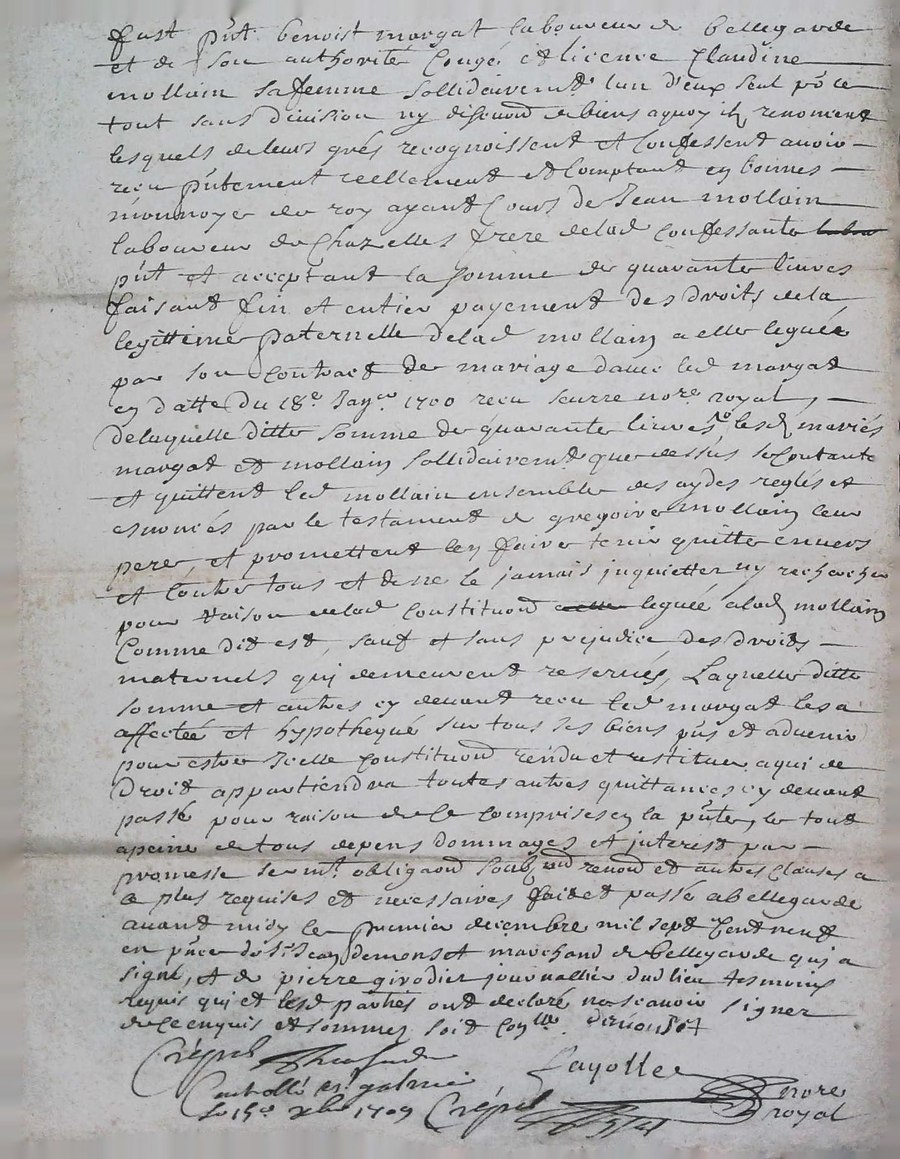 fust pnt benoist margat laboureur de bellegarde
et de son authorité Congé et licence Claudine
mollain sa femme sollidairemt lun d'eux seul pr le
tout sans division ny discuond de biens aquoy ilz renoncent
lesquels de leurs grés recognoissent et Confessent avoir
reçu pntement reellement et Comptant en bonnes
monnoyes du roy ayant Cours de Jean mollain
laboureur de Chazelles frere de lad Confessante
pnt et acceptant la somme de quarante livres
faisant fin et entier payement des droits de la
legittime paternelle de lad mollain a elle leguée
par son Contract de mariage avec led margat
en datte du 18e Janvr 1700 reçu notre royal,
de laquelle ditte somme de quarante livres lesd mariés
margat et mollain sollidairemt que dessus se Contante
et quittent led mollain ensemble des aydes reglés et
enoncés par le testament de gregoire mollain leur
pere, et promettent len faire tenir quitte envers
et Contre tous et de ne le jamais inquietter ny rechercher
pour raison de lad Constituond leguée a lad mollain
Comme dit est, sauf et sans prejudice des droits
maternels qui demeurent reservés, Laquelle ditte
somme et autres cy devant reçu led margat les a
affectée et hypothequé sur tous ses biens pns et advenir
pour estre Icelle Constituond rendu et restituer a qui de
Droit appartiendra toutes autres quittances cy devant
passé pour raison de ce Comprises en la pnte, le tout
a peine de tous depens dommages et interest par
promesse sermt obligaond soubz renond et autres Clauses a
ce plus requises et necessaires fait et passé a bellegarde
avant midy le premier decembre mil sept Cent neuf
en pnce de sr Jean demonet marchand de bellegarde qui a
signé, et de pierre girodier journallier dud lieu tesmoins
requis qui et lesd parties ont declaré ne scavoir signer
de ce enquis et sommez soit Conlle. demonset
Crépet
fayolle notre royal
Controllé a St galmier
le 15e xbre 1709 Crépet